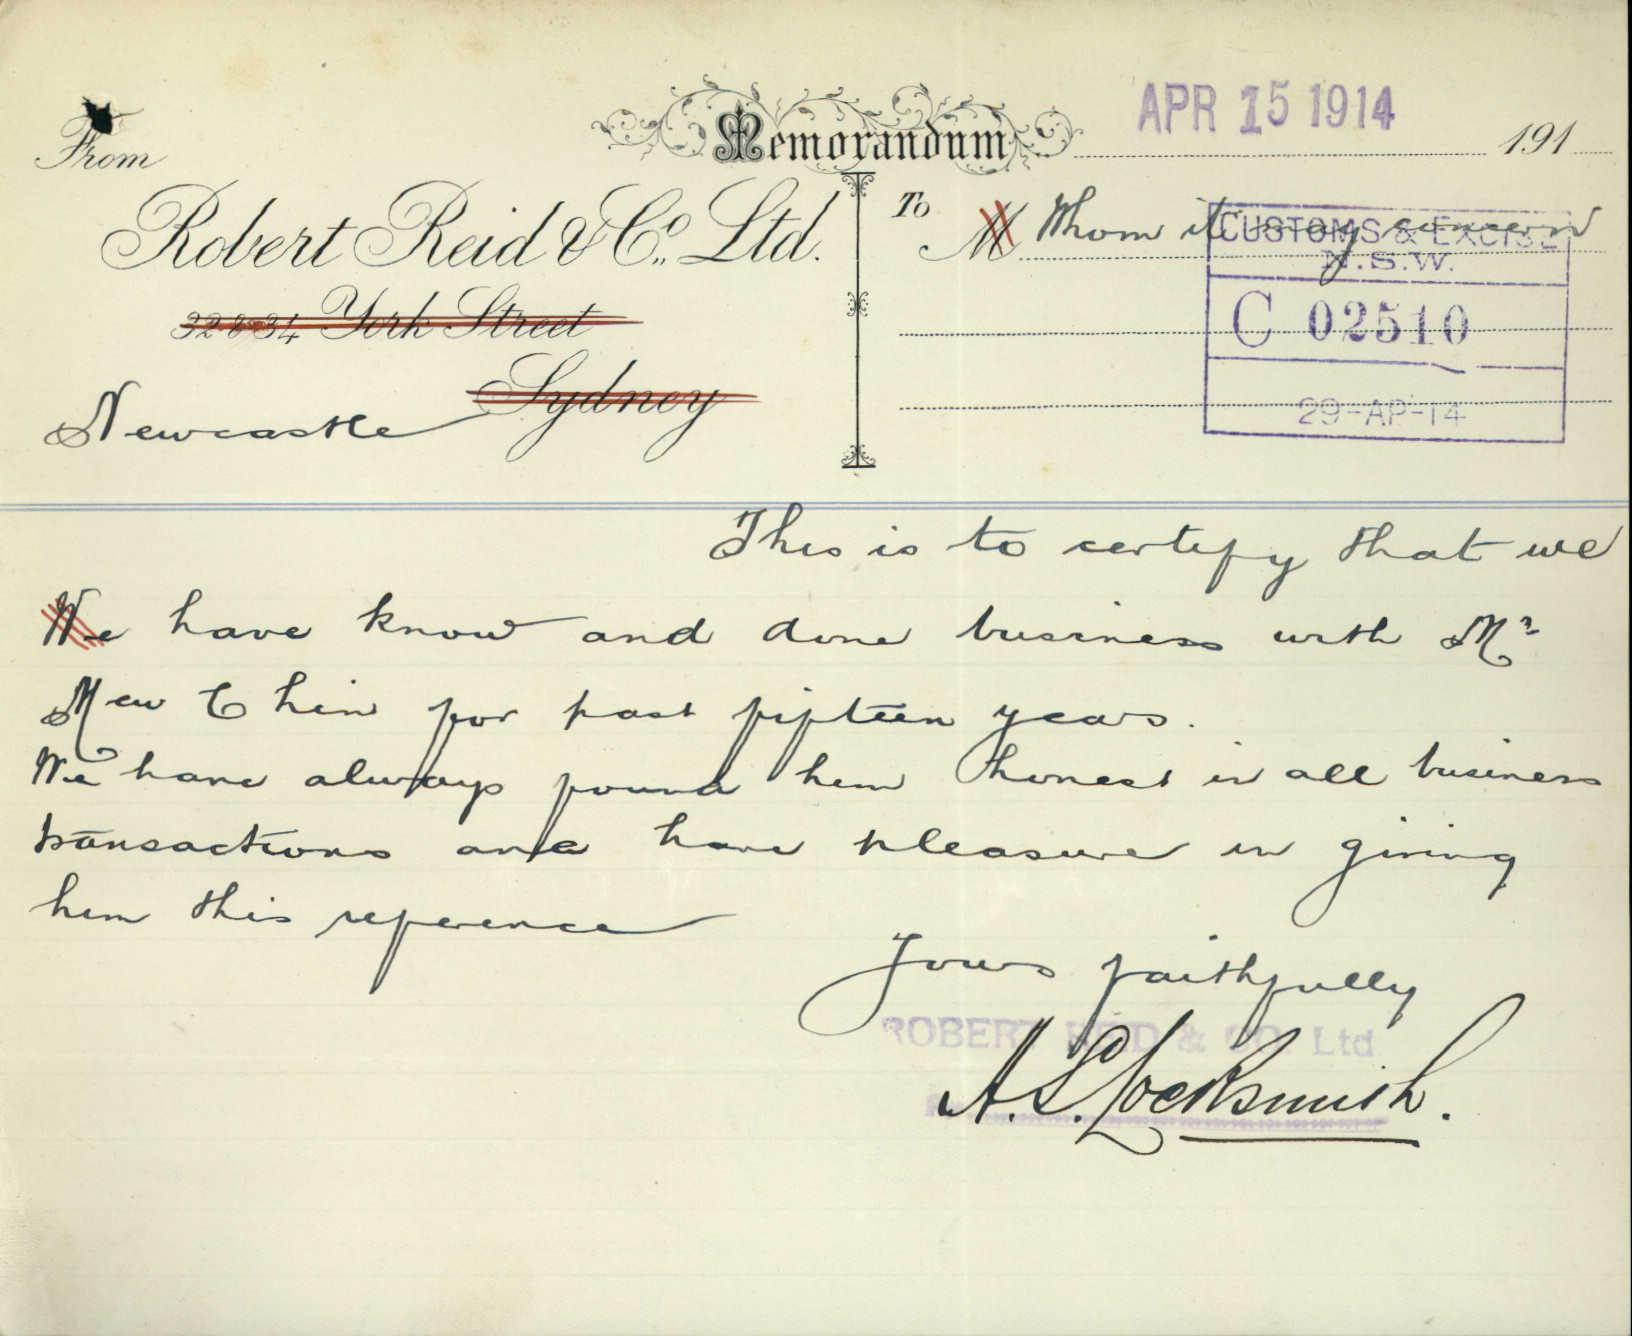 Memorandum
APR 15 1914
191
From
Robert Reid & Co. Ltd.
32 & 34 York Street
Sydney
Newcastle
To
M Whom it may concern
CUSTOMS & EXCISE
N.S.W.
C 02510
29-AP-14
This is to certify that we
We have know and done business with Mr
Mew Chin for past fifteen years.
We have always found him honest in all business
transactions and have pleasure in giving
him this reference
Yours faithfully
ROBERT REID & CO. Ltd
A. L. Locksmith.